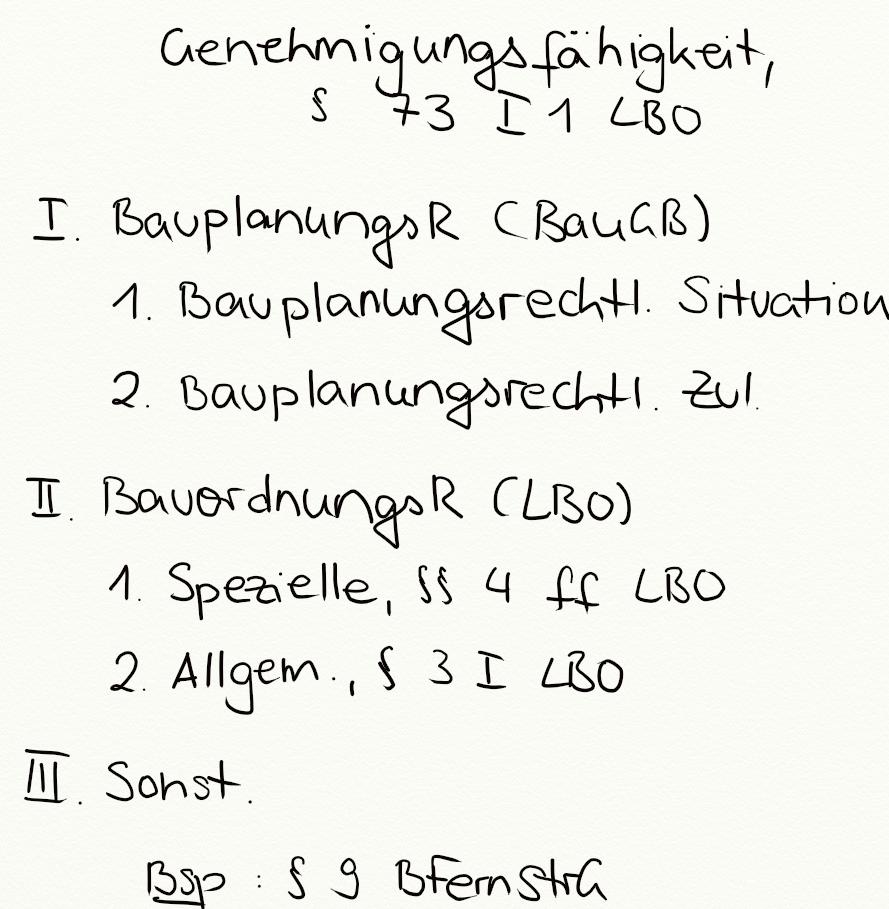 Genehmigungsfähigkeit,
§ 73 I 1 LBO
I. BauplanungsR (BauGB)
1. Bauplanungsrechtl. Situation
2. Bauplanungsrechtl. Zul.
II. BauordnungsR (LBO)
1. Spezielle, §§ 4 ff LBO
2. Allgem., § 3 I LBO
III. Sonst.
Bsp : § 9 BFernStrG